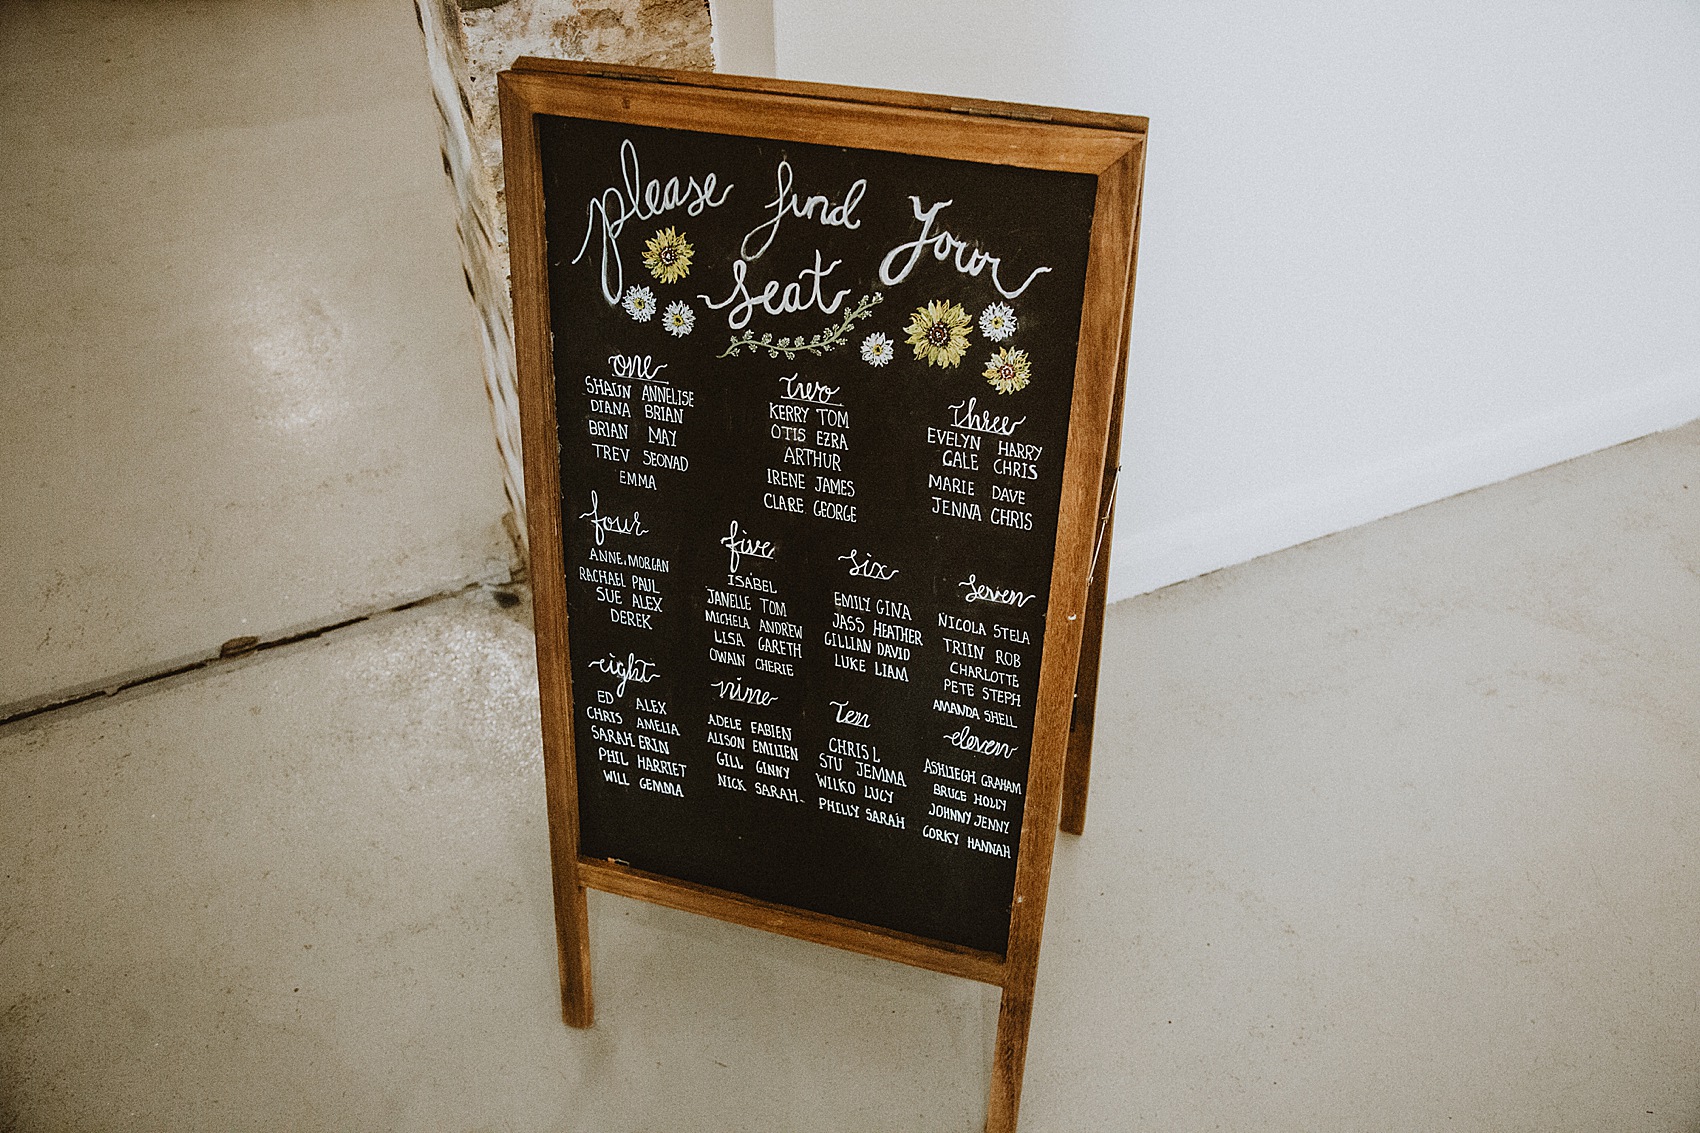 please find your
seat
one
SHAUN ANNELISE
DIANA BRIAN
BRIAN MAY
TREV SEONAD
EMMA
two
KERRY TOM
OTIS EZRA
ARTHUR
IRENE JAMES
CLARE GEORGE
three
EVELYN HARRY
GALE CHRIS
MARIE DAVE
JENNA CHRIS
four
ANNE. MORGAN
RACHAEL PAUL
SUE ALEX
DEREK
five
ISABEL
JANELLE TOM
MICHELA ANDREW
LISA GARETH
OWAIN CHERIE
six
EMILY GINA
JASS HEATHER
GILLIAN DAVID
LUKE LIAM
seven
NICOLA STELA
TRIIN ROB
CHARLOTTE
PETE STEPH
AMANDA SHELL
eight
ED ALEX
CHRIS AMELIA
SARAH ERIN
PHIL HARRIET
WILL GEMMA
nine
ADELE FABIEN
ALISON EMILIEN
GILL GINNY
NICK SARAH
Ten
CHRIS L
STU JEMMA
WILKO LUCY
PHILLY SARAH
eleven
ASHLIEGH GRAHAM
BRUCE HOLLY
JOHNNY JENNY
CORKY HANNAH